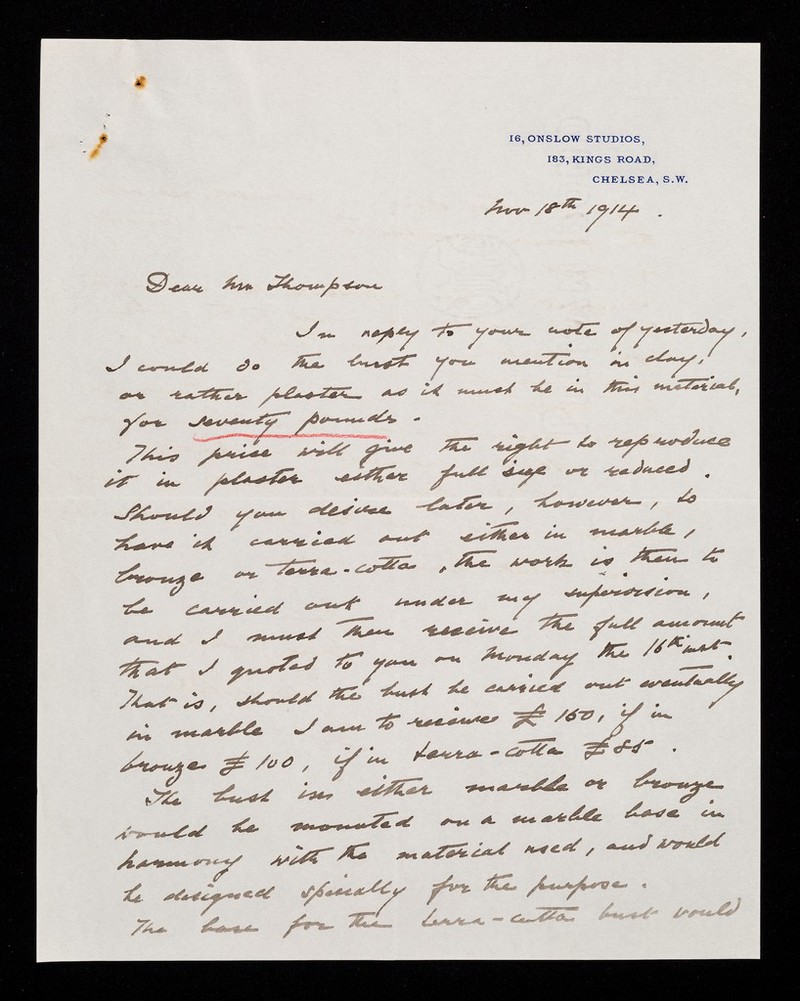 16, ONSLOW STUDIOS,
183, KINGS ROAD,
CHELSEA, S.W.
Nov 18th 1914.
Dear Mr Thompson
In reply to your note of yesterday,
I could do the bust you mention in clay,
or rather plaster as it must be in this material,
for seventy pounds.
This price will give the right to reproduce
it in plaster either full size or reduced.
Should you desire later, however, to
have it carried out either in marble,
bronze or terra-cotta, the work is then to
be carried out under my supervision,
and I must then receive the full amount
that I quoted to you on Monday the 16th inst.
That is, should the bust be carried out eventually
in marble I am to receive £150, if in
bronze £100, if in terra-cotta £85.
The bust in either marble or bronze
would be mounted on a marble base in
harmony with the material used, and would
be designed specially for the purpose.
The base for the terra-cotta bust would